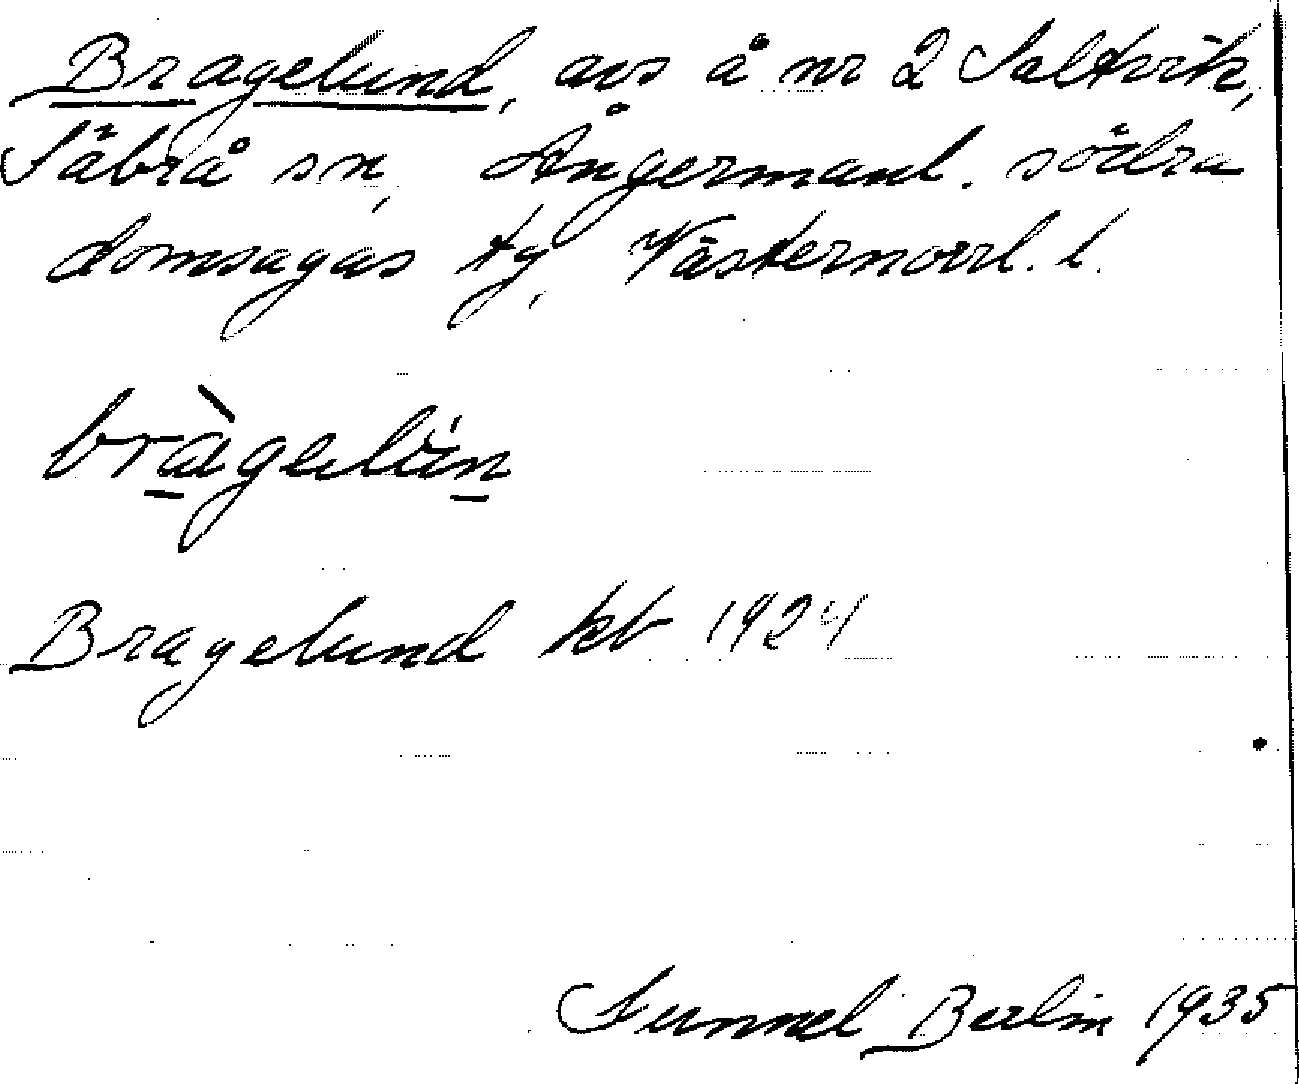 Bragelund, avs å nr 2 Saltvik,
Säbrå sn, Ångermanl. södra
domsagas tg, Västernorrl. l.
bràgelún
Bragelund kb 1924
Gunnel Berlin 1935